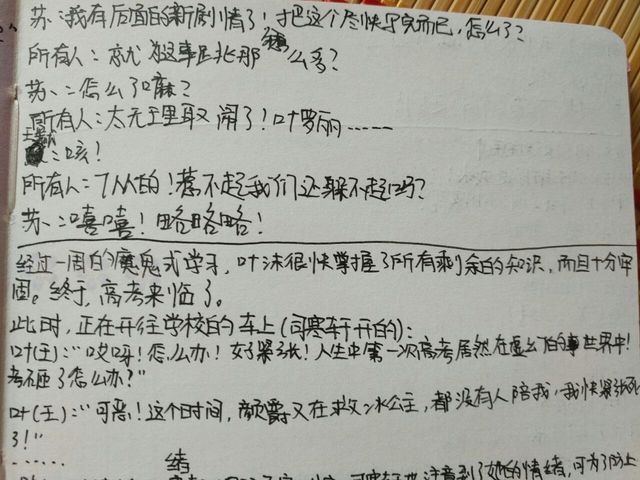 苏:我有后面的新剧情了！才把这个尽快写完而已,怎么了？
所有人:就为这事跳那么多？
苏:怎么了嘛？
所有人:太无理取闹了！叶罗丽……
:咳！
所有人:TM的！惹不起我们还躲不起吗？
苏:嘻嘻！略略略！
经过一周的魔鬼式学习,叶沫很快掌握了所有剩余的知识,而且十分牢
固。终于,高考来临了。
此时,正在开往学校的车上(司寒轩开的):
叶(王):“哎呀！怎么办！好紧张！人生中第一次高考居然在虚幻的世界中！
考砸了怎么办？”
叶(王):“可恶！这个时间,颜爵又在救冰公主,都没有人陪我,我快紧张死
了！”
……
绪
注意到了她的情绪,可为了防止